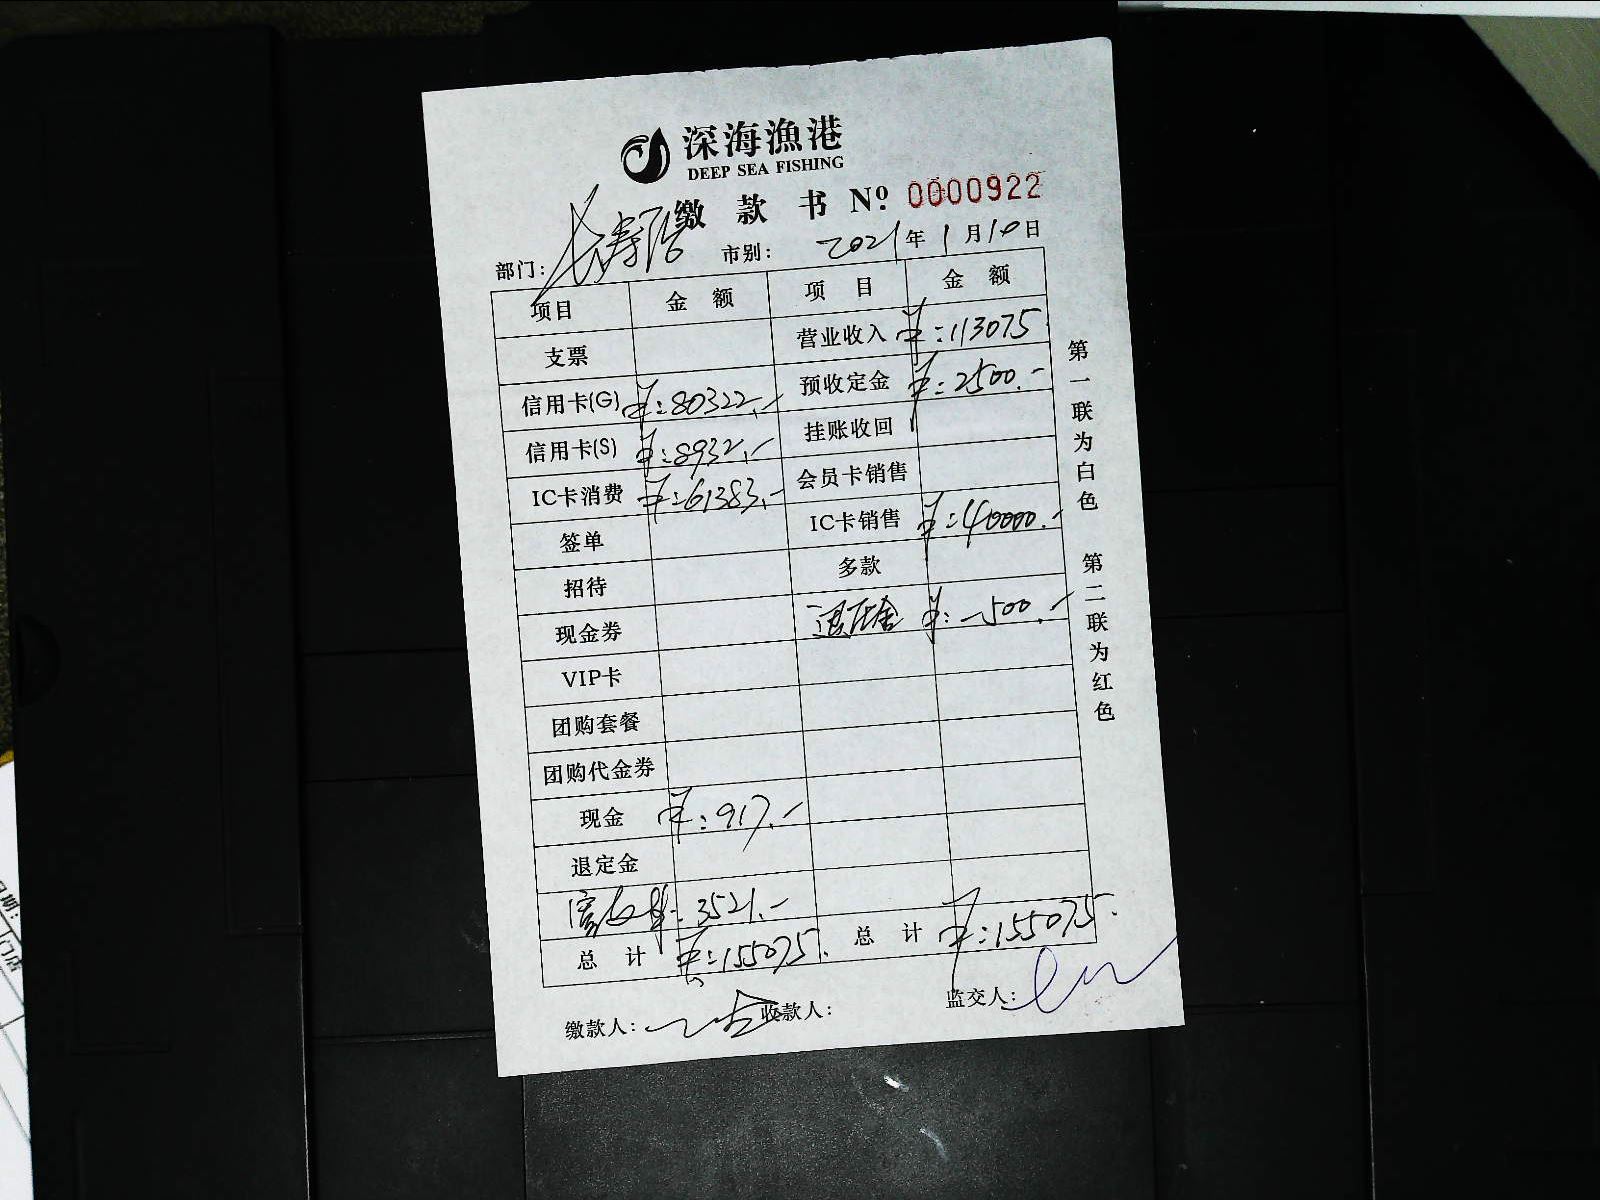 深海渔港
DEEP SEA FISHING
缴款书 Nº: 0000922
部门: 长寿路 市别: 2021年1月10日
项目 金额 项目 金额
支票 营业收入 ¥:113075
信用卡(G) ¥:80322.- 预收定金 ¥:2500.-
信用卡(S) ¥:8932.- 挂账收回
IC卡消费 ¥:61383.- 会员卡销售
签单 IC卡销售 ¥:40000.-
招待 多款
现金券 退定金 ¥:-500.-
VIP卡
团购套餐
团购代金券
现金 ¥:917.-
退定金
¥:3521.-
总计 ¥:155075. 总计 ¥:155075.
缴款人: 收款人: 监交人:
第一联为白色 第二联为红色
日期:
门店